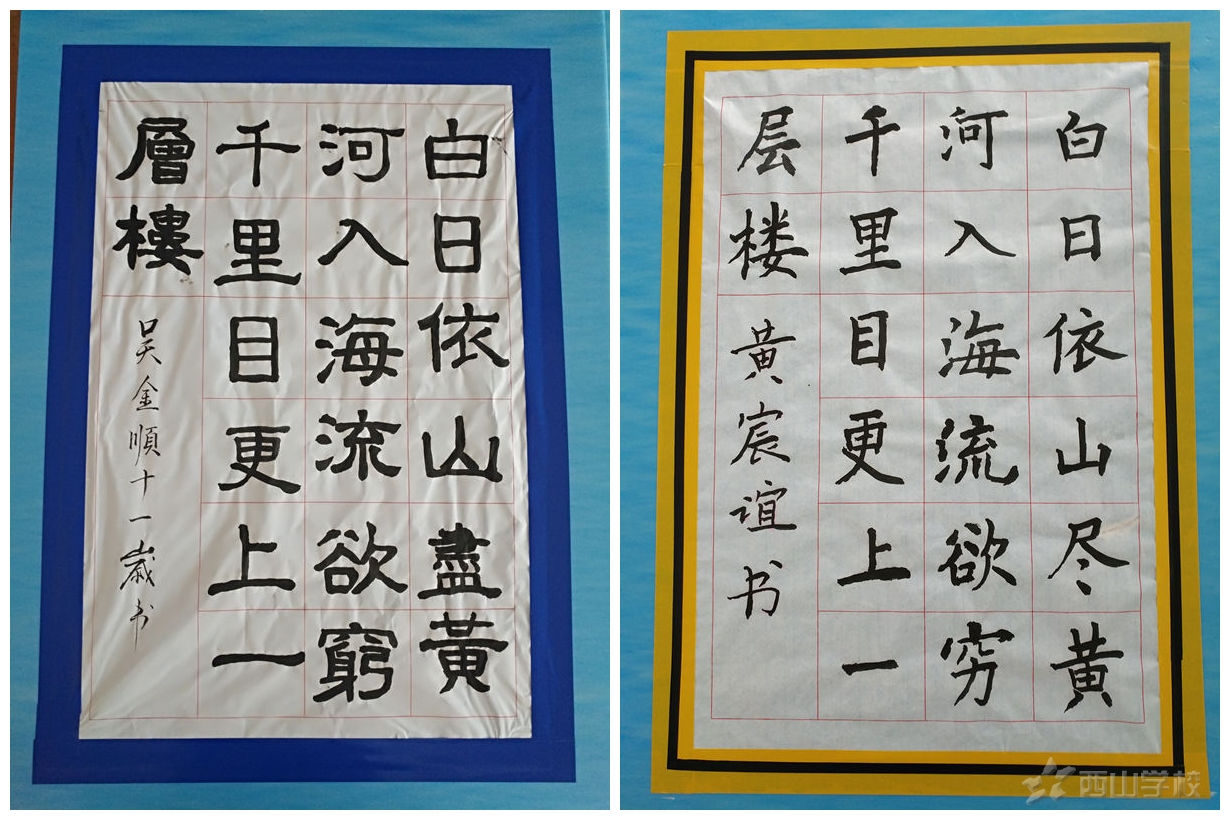 白日依山盡黃
河入海流欲窮
千里目更上一
層樓
吴金順十一歲书
白日依山尽黄
河入海流欲穷
千里目更上一
层楼
黄宸谊书
西山学校